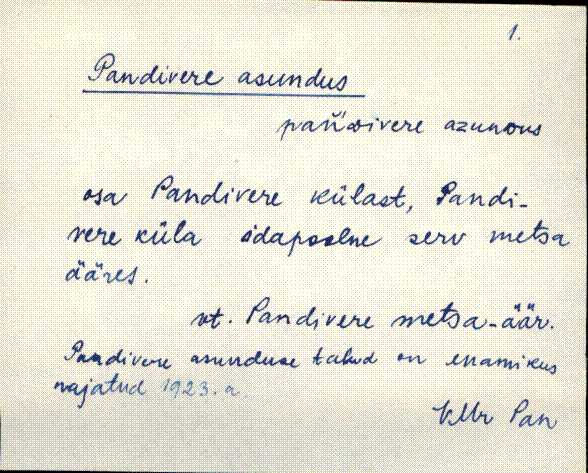 1.
Pandivere asundus
azundus
osa Pandivere külast, Pandi-
vere küla idapoolne serv metsa
ääres.
vt. Pandivere metsa-äär.
Pandivere asunduse talud on enamikus
rajatud 1923. a.
VMr Pan